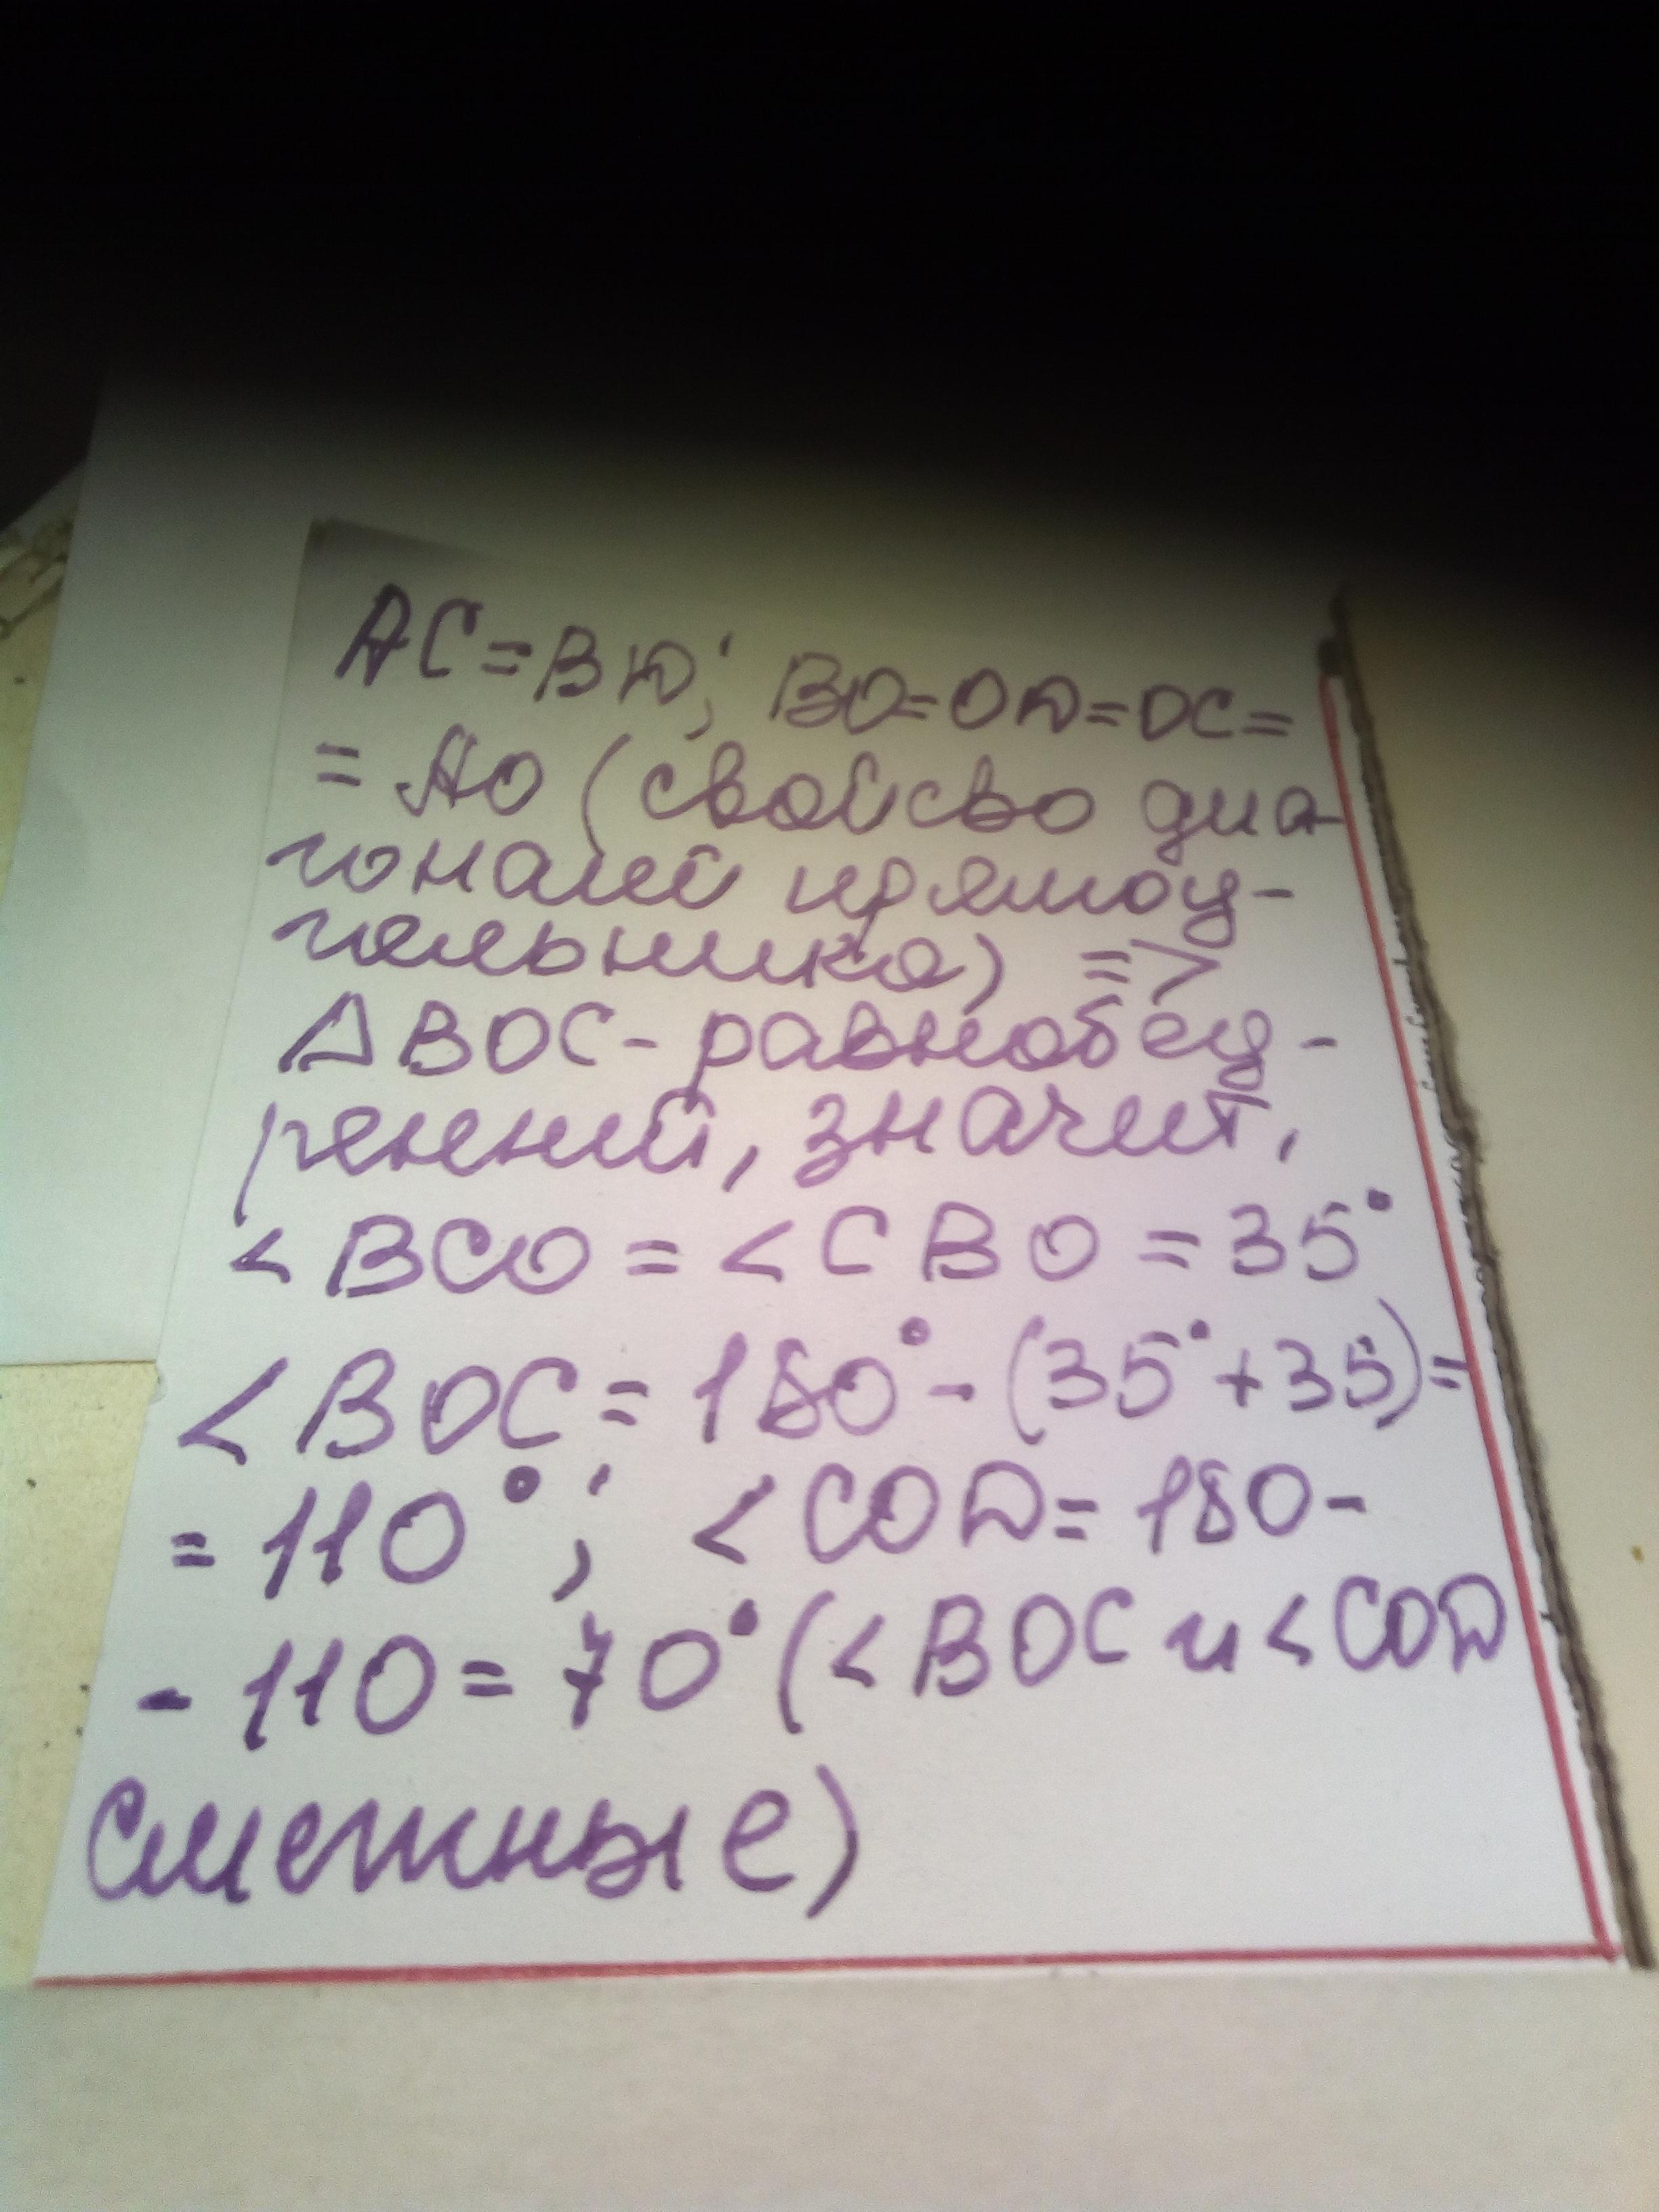 AC=BD; BO=OD=OC=
=AO (свойсво диа
гоналей прямоу-
гольника) =>
△BOC-равнобед-
ренний, значит,
<BCO=<CBO=35°
<BOC=180°-(35°+35)=
=110°; <COD=180-
-110=70°(<BOC и <COD
Смежные)